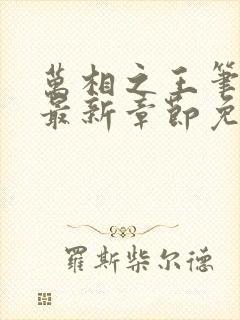 萬相之王筆
最新章節免
羅斯柴尔德